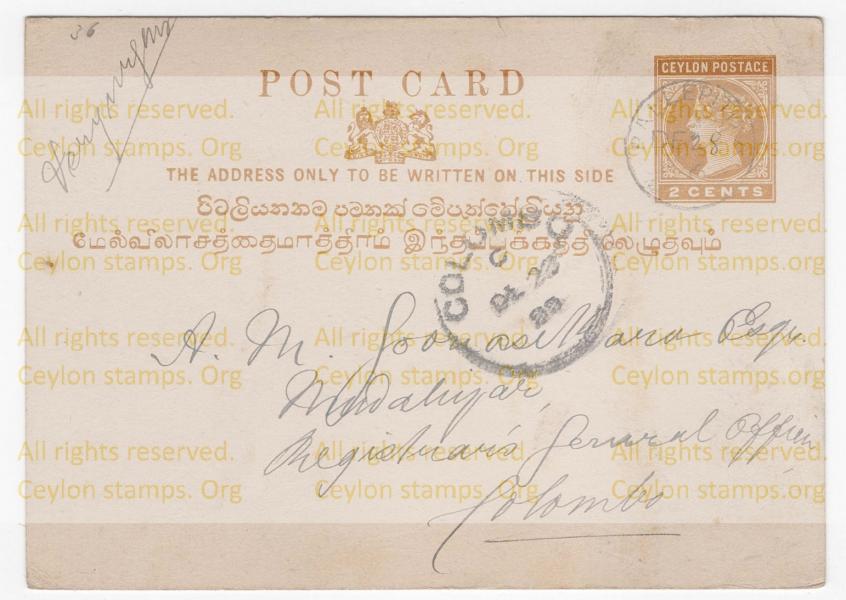 36
POST CARD
CEYLON POSTAGE
2 CENTS
DE 28
THE ADDRESS ONLY TO BE WRITTEN ON THIS SIDE
පිටලියතනම පමනක් මේපැත්තේලියනු
மேல்விலாசத்தைமாத்திரம் இந்தபபுக்கத்திலெழுதவும்
COLOMBO
C
DE 28
99
A. M. Goonasekara Esqr.
Mudaliyar,
Registrar's General Office
Colombo
All rights reserved. All rights reserved. All rights reserved.
Ceylon stamps. Org Ceylon stamps. Org Ceylon stamps. Org
All rights reserved. All rights reserved. All rights reserved.
Ceylon stamps. Org Ceylon stamps. Org Ceylon stamps. Org
All rights reserved. All rights reserved. All rights reserved.
Ceylon stamps. Org Ceylon stamps. Org Ceylon stamps. Org
All rights reserved. All rights reserved. All rights reserved.
Ceylon stamps. Org Ceylon stamps. Org Ceylon stamps. Org